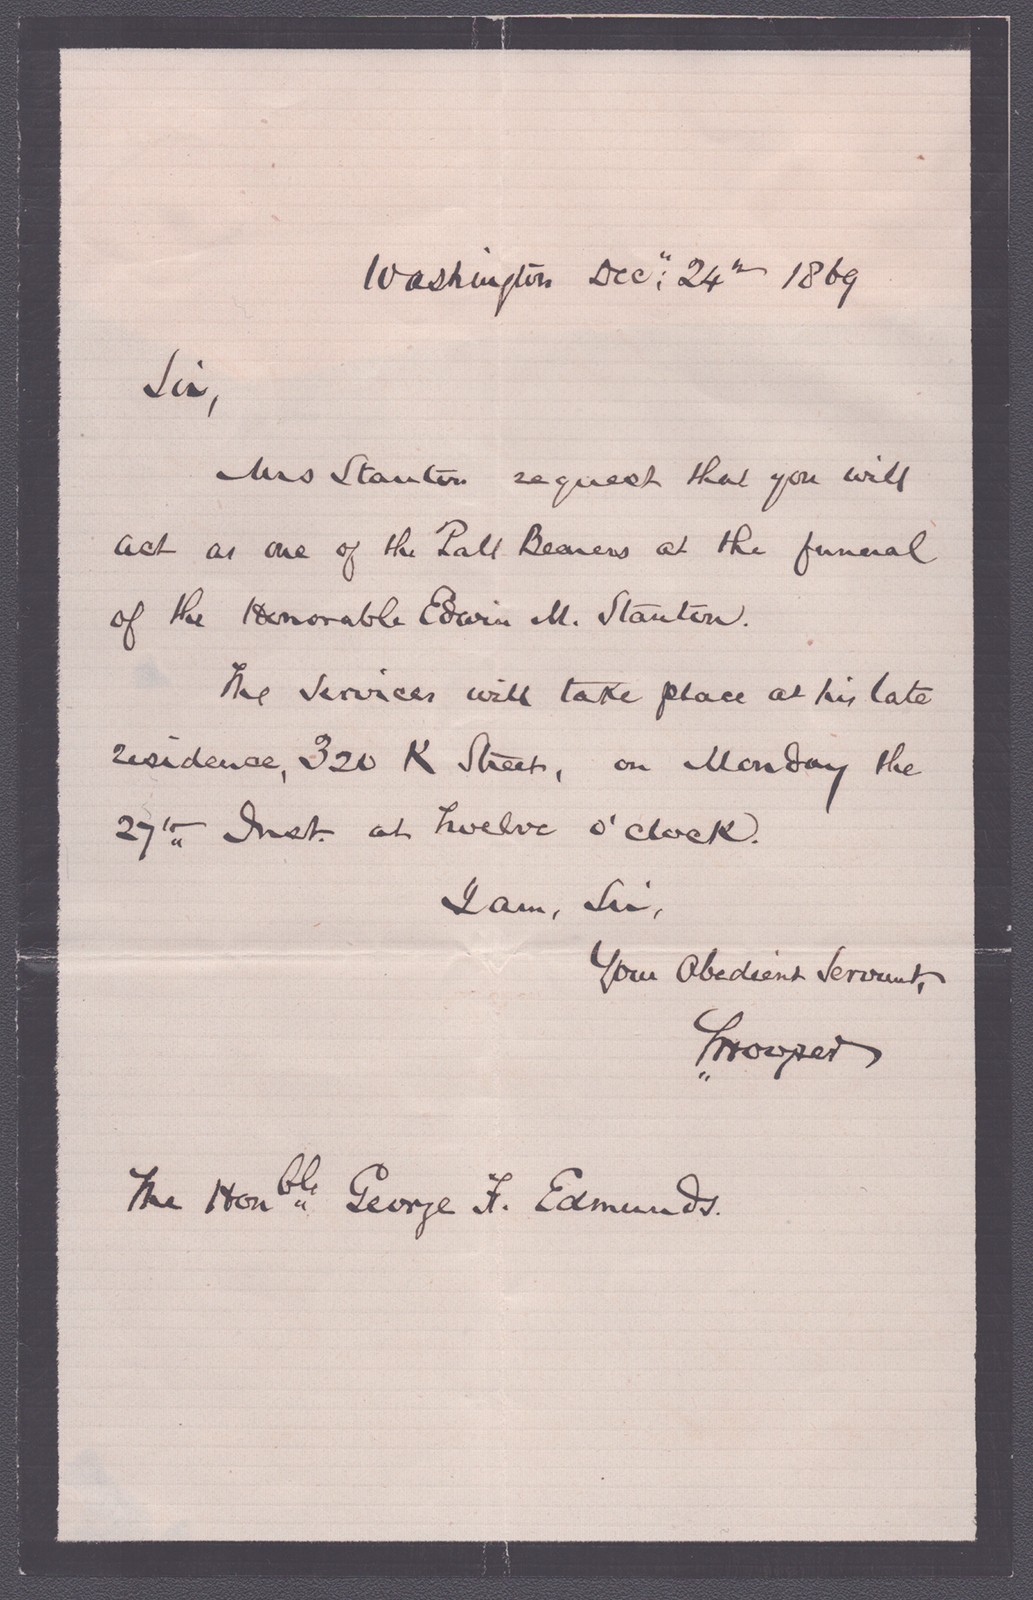 Washington Dec: 24th 1869
Sir,
Mrs Stanton request that you will
act as one of the Pall Bearers at the funeral
of the Honorable Edwin M. Stanton.
The Services will take place at his late
residence, 320 K Street, on Monday the
27th Inst. at twelve o'clock.
I am, Sir,
Your Obedient Servant,
The Honble George F. Edmunds.